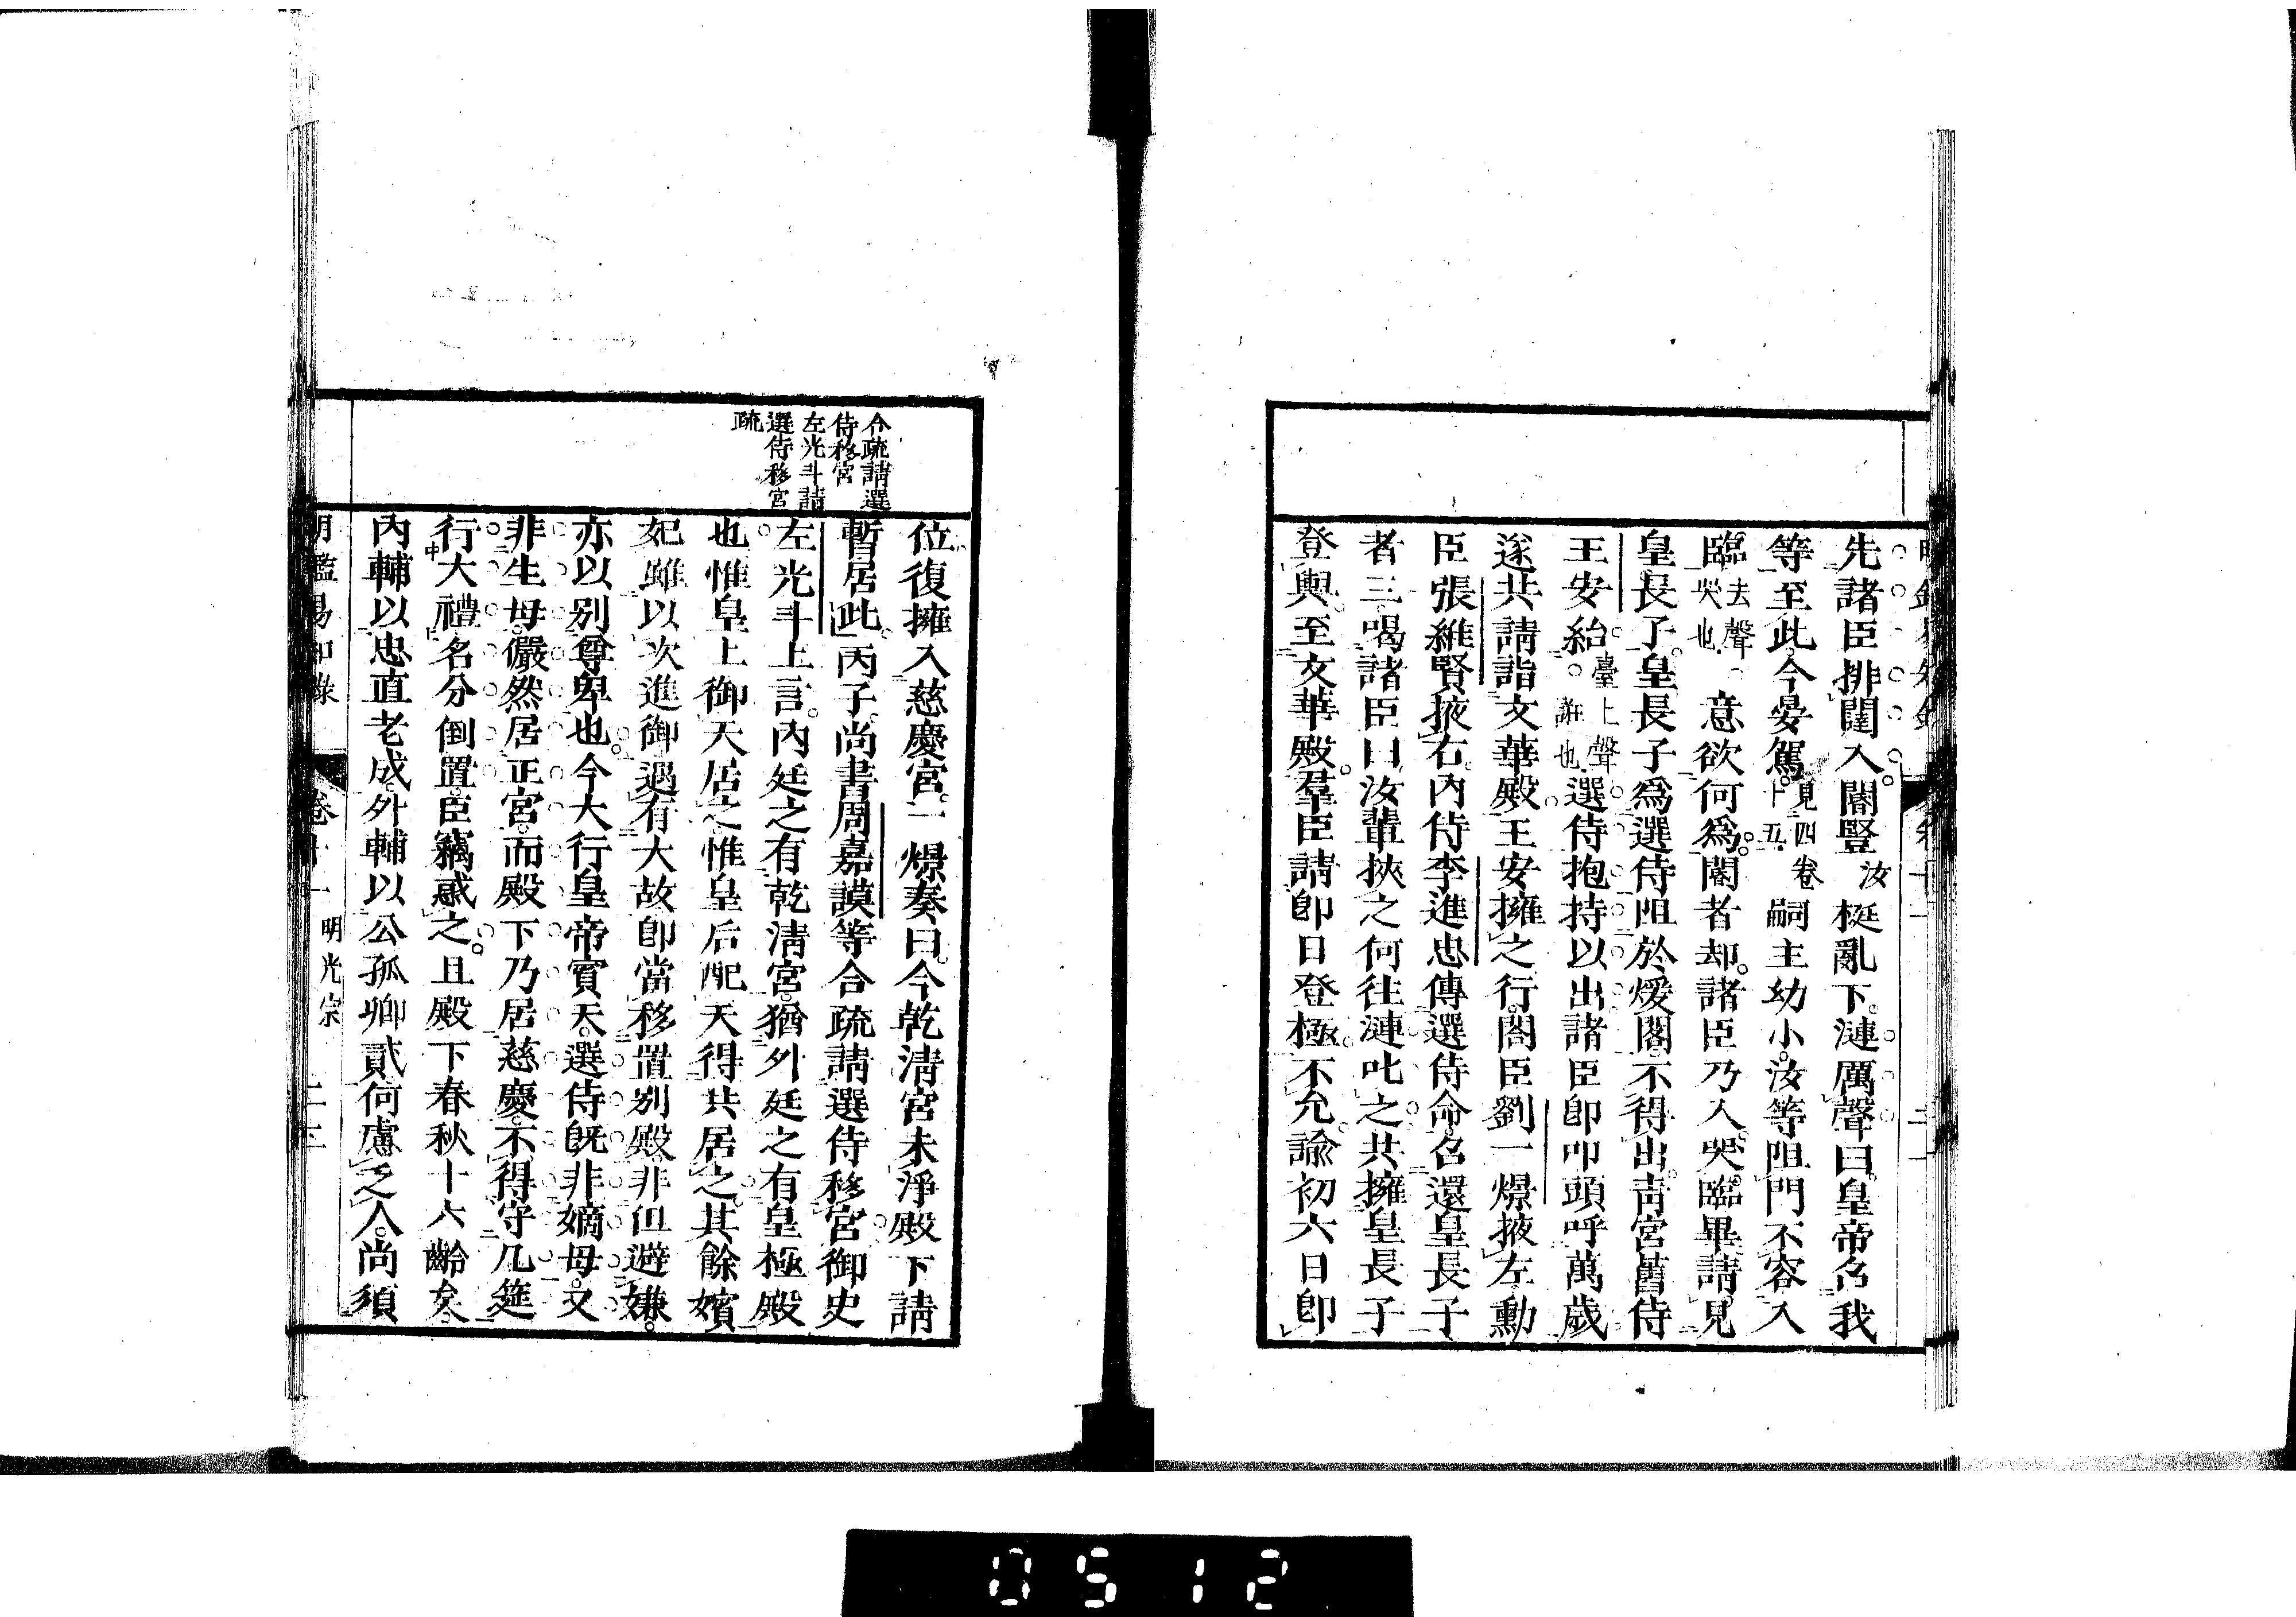 先諸臣排闥入。閽豎汝梃亂下。漣厲聲曰。皇帝召我
等至此。今晏駕。見四卷十五嗣主幼小。汝等阻門不容入
臨去聲。哭也。意欲何爲。閽者却。諸臣乃入。哭臨畢。請見
皇長子。皇長子爲選侍阻於煖閣。不得出。靑宮舊侍
王安紿。臺上聲。誑也選侍抱持以出。諸臣卽叩頭呼萬歲
遂共請詣文華殿。王安擁之行。閣臣劉一燝掖左。勳
臣張維賢掖右。內侍李進忠傳選侍命。召還皇長子
者三。喝諸臣曰。汝輩挾之何往。漣叱之。共擁皇長子
登輿。至文華殿。羣臣請卽日登極。不允。諭初六日卽
位。復擁入慈慶宮。一燝奏曰。今乾淸宮未淨。殿下請
暫居此。丙子。尚書周嘉謨等合疏請選侍移宮。御史
左光斗上言。內廷之有乾淸宮。猶外廷之有皇極殿
也。惟皇上御天居之。惟皇后配天得共居之。其餘嬪
妃雖以次進御。遇有大故。卽當移置別殿。非但避嫌。
亦以別尊卑也。今大行皇帝賓天。選侍旣非嫡母。又
非生母。儼然居正宮。而殿下乃居慈慶。不得守几筵
行大禮。名分倒置。臣竊惑之。且殿下春秋十六齡矣
內輔以忠直老成。外輔以公孤卿貳。何慮乏人。尚須
合疏請選
侍移宮
左光斗請
選侍移宮
疏
明鑑易知錄
卷十一
明光宗
0512